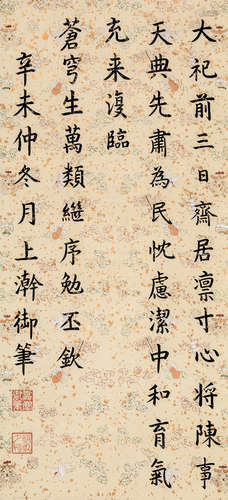 大祀前三日齋居凛寸心将陳事
天典先肅為民忱慮潔中和育氣
克来復臨
蒼穹生萬類繼序勉丕欽
辛未仲冬月上澣御筆